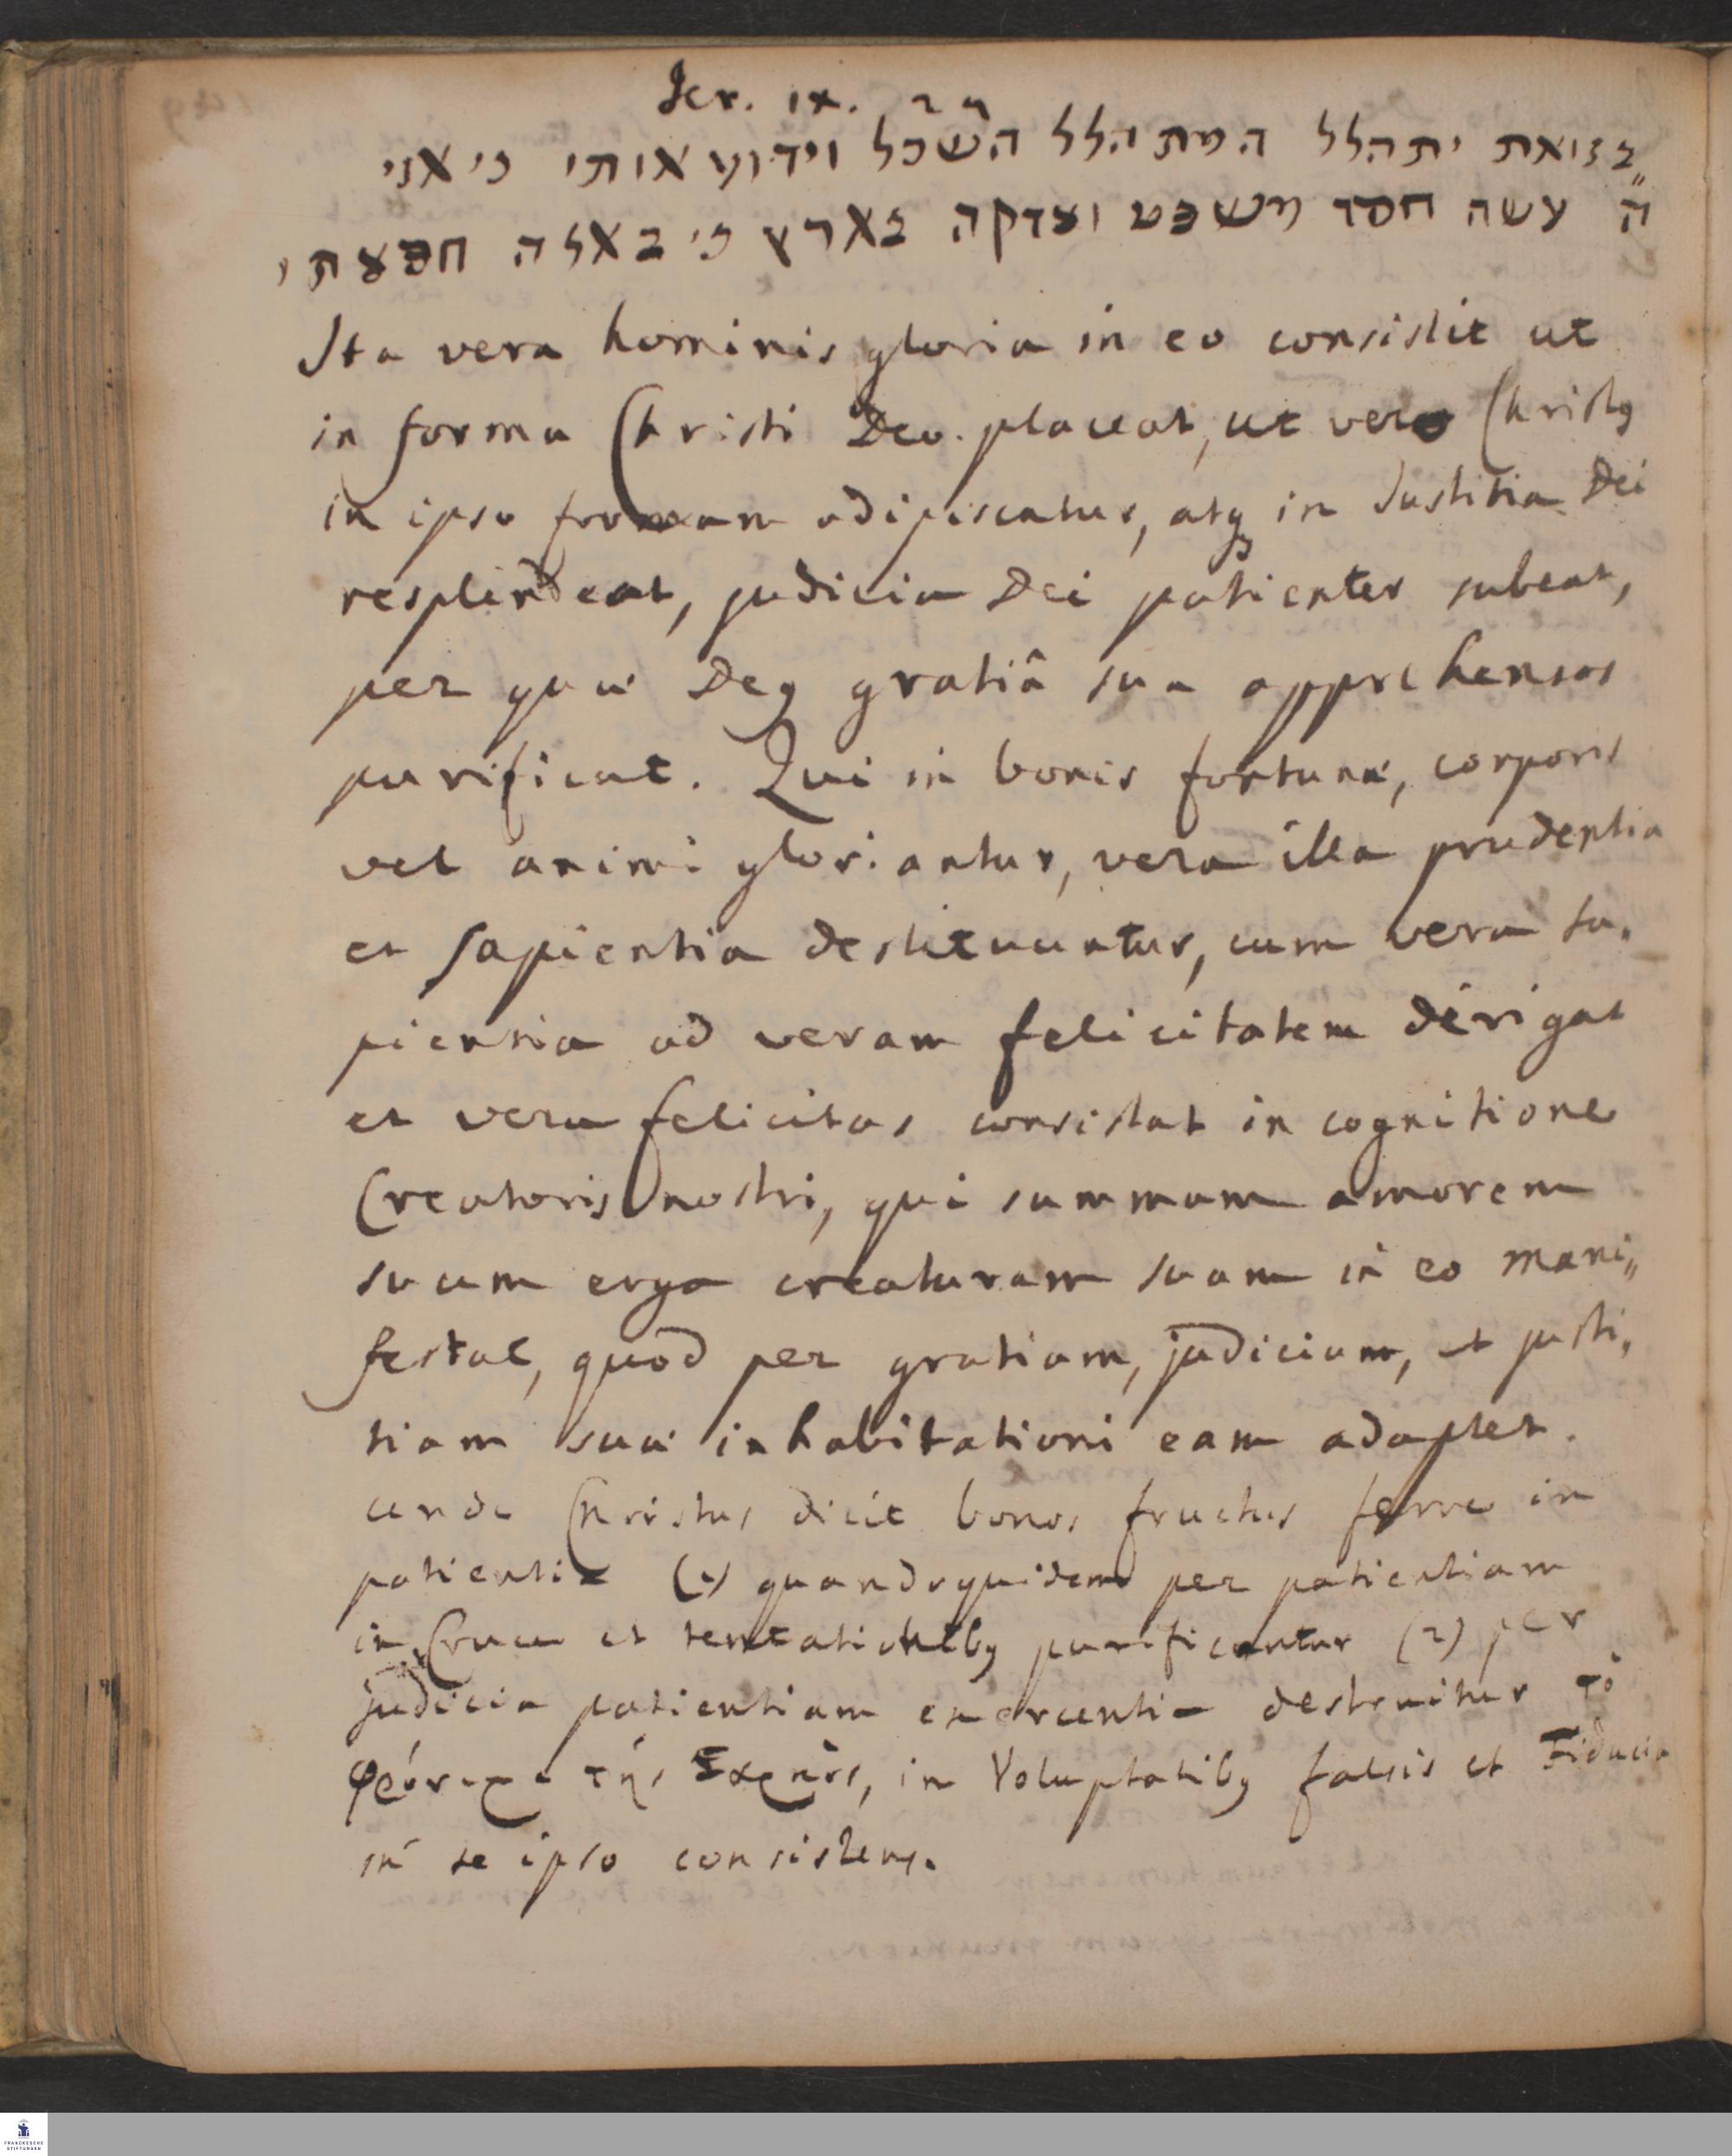 Jer. ix. 24
בזואת יתהלל המתהלל השכל וידוע אותי כי אני
ה עשה חסד משפט וצדקה בארץ כי באלה חפצתי
Ita vera hominis gloria in eo consistit ut
in forma Christi Deo placeat, ut vero Christq
in ipso formam adipiscatur, atq in Justitia Dei
resplendeat, judicia Dei patienter subeat,
per quæ Deq gratiâ sua apprehensos
purificat. Qui in bonis fortunæ, corporis
vel animi gloriantur, vera illa prudentia
et sapientia destituuntur, cum vera sa„
pientia ad veram felicitatem dirigat
et vera felicitas consistat in cognitione
Creatoris nostri, qui summum amorem
suum erga creaturam suam in eo mani„
festat, quod per gratiam, judicium, et justi„
tiam suæ inhabitationi eam adaptet.
unde Christus dicit bonos fructus ferre in
patientia (1) quandoquidem per patientiam
in Cruce et tentationibq purificantur (2) per
judicia patientiam exercentia destruitur τὸ
φρόνημα τῆς σαρκὸς, in Voluptatibq falsis et Fiducia
in se ipso consistens.
FRANCKESCHE
STIFTUNGEN